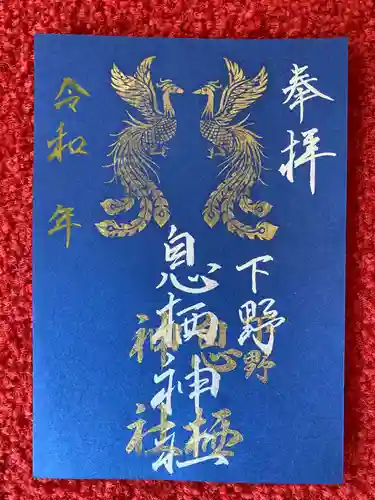 奉拝
下野
息栖神社
令和 年